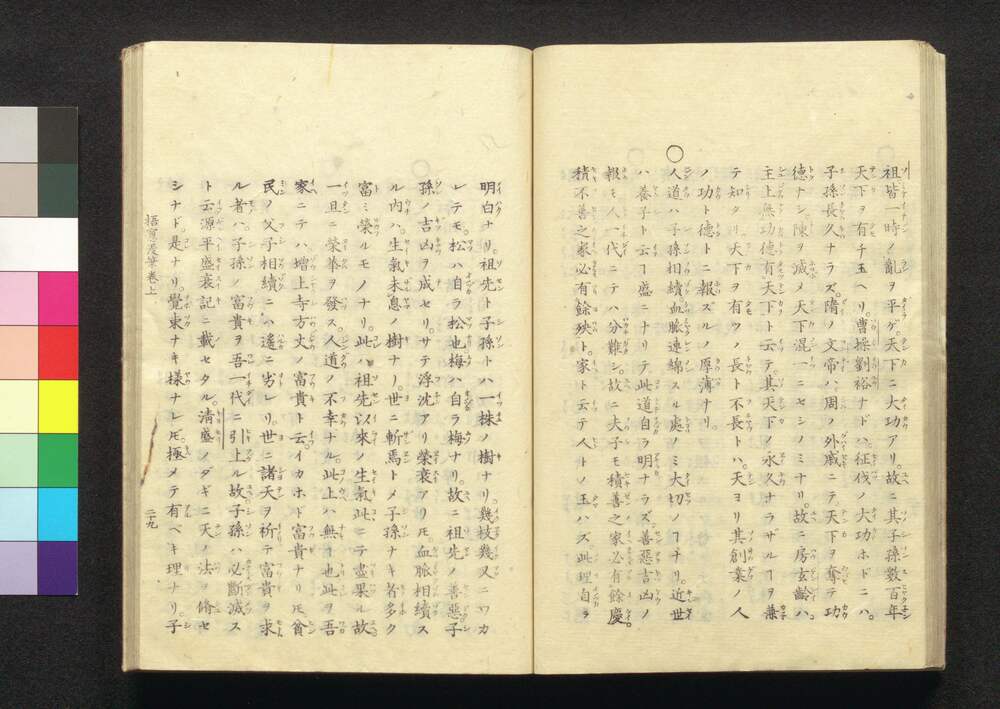 祖皆一時ノ亂ヲ平ゲ。天下ニ大功アリ。故ニ其子孫數百年
天下ヲ有チ玉ヘリ。曹操劉裕ナドハ。征伐ノ大功ホドニハ。
子孫長久ナラズ。隋ノ文帝ハ。周ノ外戚ニテ天下ヲ奪テ功
德ナシ。陳ヲ滅メ天下混一ニセシノミナリ。故ニ房玄齡ハ。
主上無功德有天下ト云テ。其天下ノ永久ナラザルヿヲ兼
テ知タリ天下ヲ有ツノ長ト不長トハ。天ヨリ其創業ノ人
ノ功ト德トニ報ズルノ厚薄ナリ
〇人道ハ子孫相續血脈連綿スル處ノミ大切ノヿナリ。近世
ハ養子ト云ヿ盛ニナリテ此道自ラ明ナラズ。善惡吉凶ノ
報モ人一代ニテハ分難シ。故ニ夫子モ積善之家必有餘慶。
積不善之家必有餘殃ト。家ト云テ人トノ玉ハズ此理自ラ
明白ナリ。祖先ト子孫トハ一株ノ樹ナリ。幾枝幾叉ニワカ
レテモ。松ハ自ラ松也梅ハ自ラ梅ナリ。故ニ祖先ノ善惡子
孫ノ吉凶ヲ成セリ。サテ浮沈アリ榮衰アリ𪜈血脈相續ス
ル内ハ。生氣未息ノ樹ナリ。世ニ斬馬トメ子孫ナキ者多ク
富ミ榮ルモノナリ。此ハ祖先以來ノ生氣此ニテ盡果ル故
一旦ニ榮華ヲ發ス。人道ノ不幸ナル。此上ハ無ヿ也此ヲ吾
家ニテハ増上寺方丈ノ富貴ト云イカホド富貴ナリ𪜈貧
民ノ父子相續ニハ遙ニ劣レリ。世ニ諸天ヲ祈テ富貴ヲ求
ル者ハ。子孫ノ富貴ヲ吾一代ニ引上ル故子孫ハ必斷滅ス
ト云源平盛衰記ニ載セタル。淸盛ノダギニ天ノ法ヲ脩セ
シナド。是ナリ。覺束ナキ様ナレ𪜈。極メテ有ベキ理ナリ。子
梧窓漫筆卷上
二十九